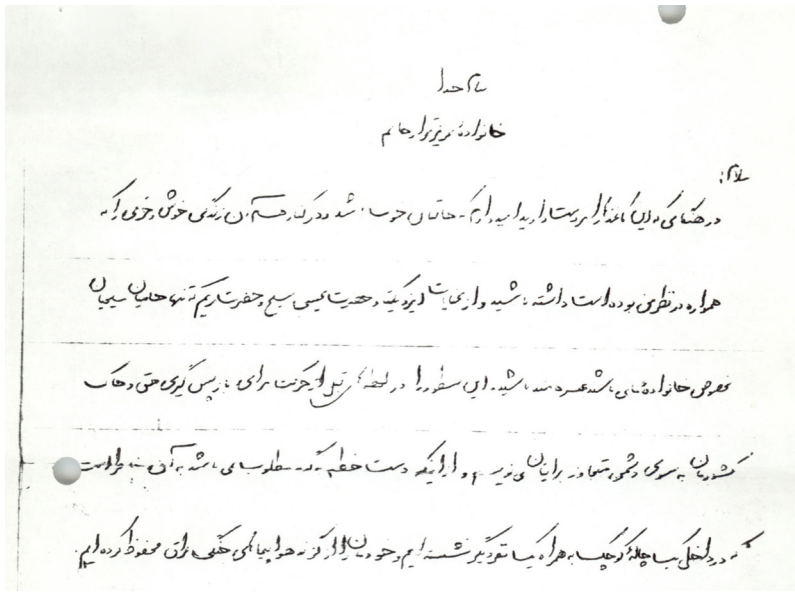 بنام خدا
خانواده عزیزتر از جانم
سلام:
در هنگامی که این کاغذ را در دست دارید امیدوارم که حالتان خوب باشد و در کنار هم آن زندگی خوش و خرمی را که
همواره در نظر من بوده است داشته باشید و از عنایات ایزد یکتا و حضرت عیسی مسیح و حضرت مریم که تنها حامیان مسیحیان
بخصوص خانواده مان می باشد بهره مند باشید. این سطور را در لحظه ای قبل از حرکت برای باز پس گیری حق و خاک
کشورمان به سوی دشمن متجاوز برایتان می نویسم و از اینکه دست خطم که نامطلوب می باشد به آن خاطر است
که در داخل یک چاله کوچک به همراه یک نفر دیگر نشسته ایم و خودمان را از گزند هواپیماهای جنگی عراق محفوظ کرده ایم.